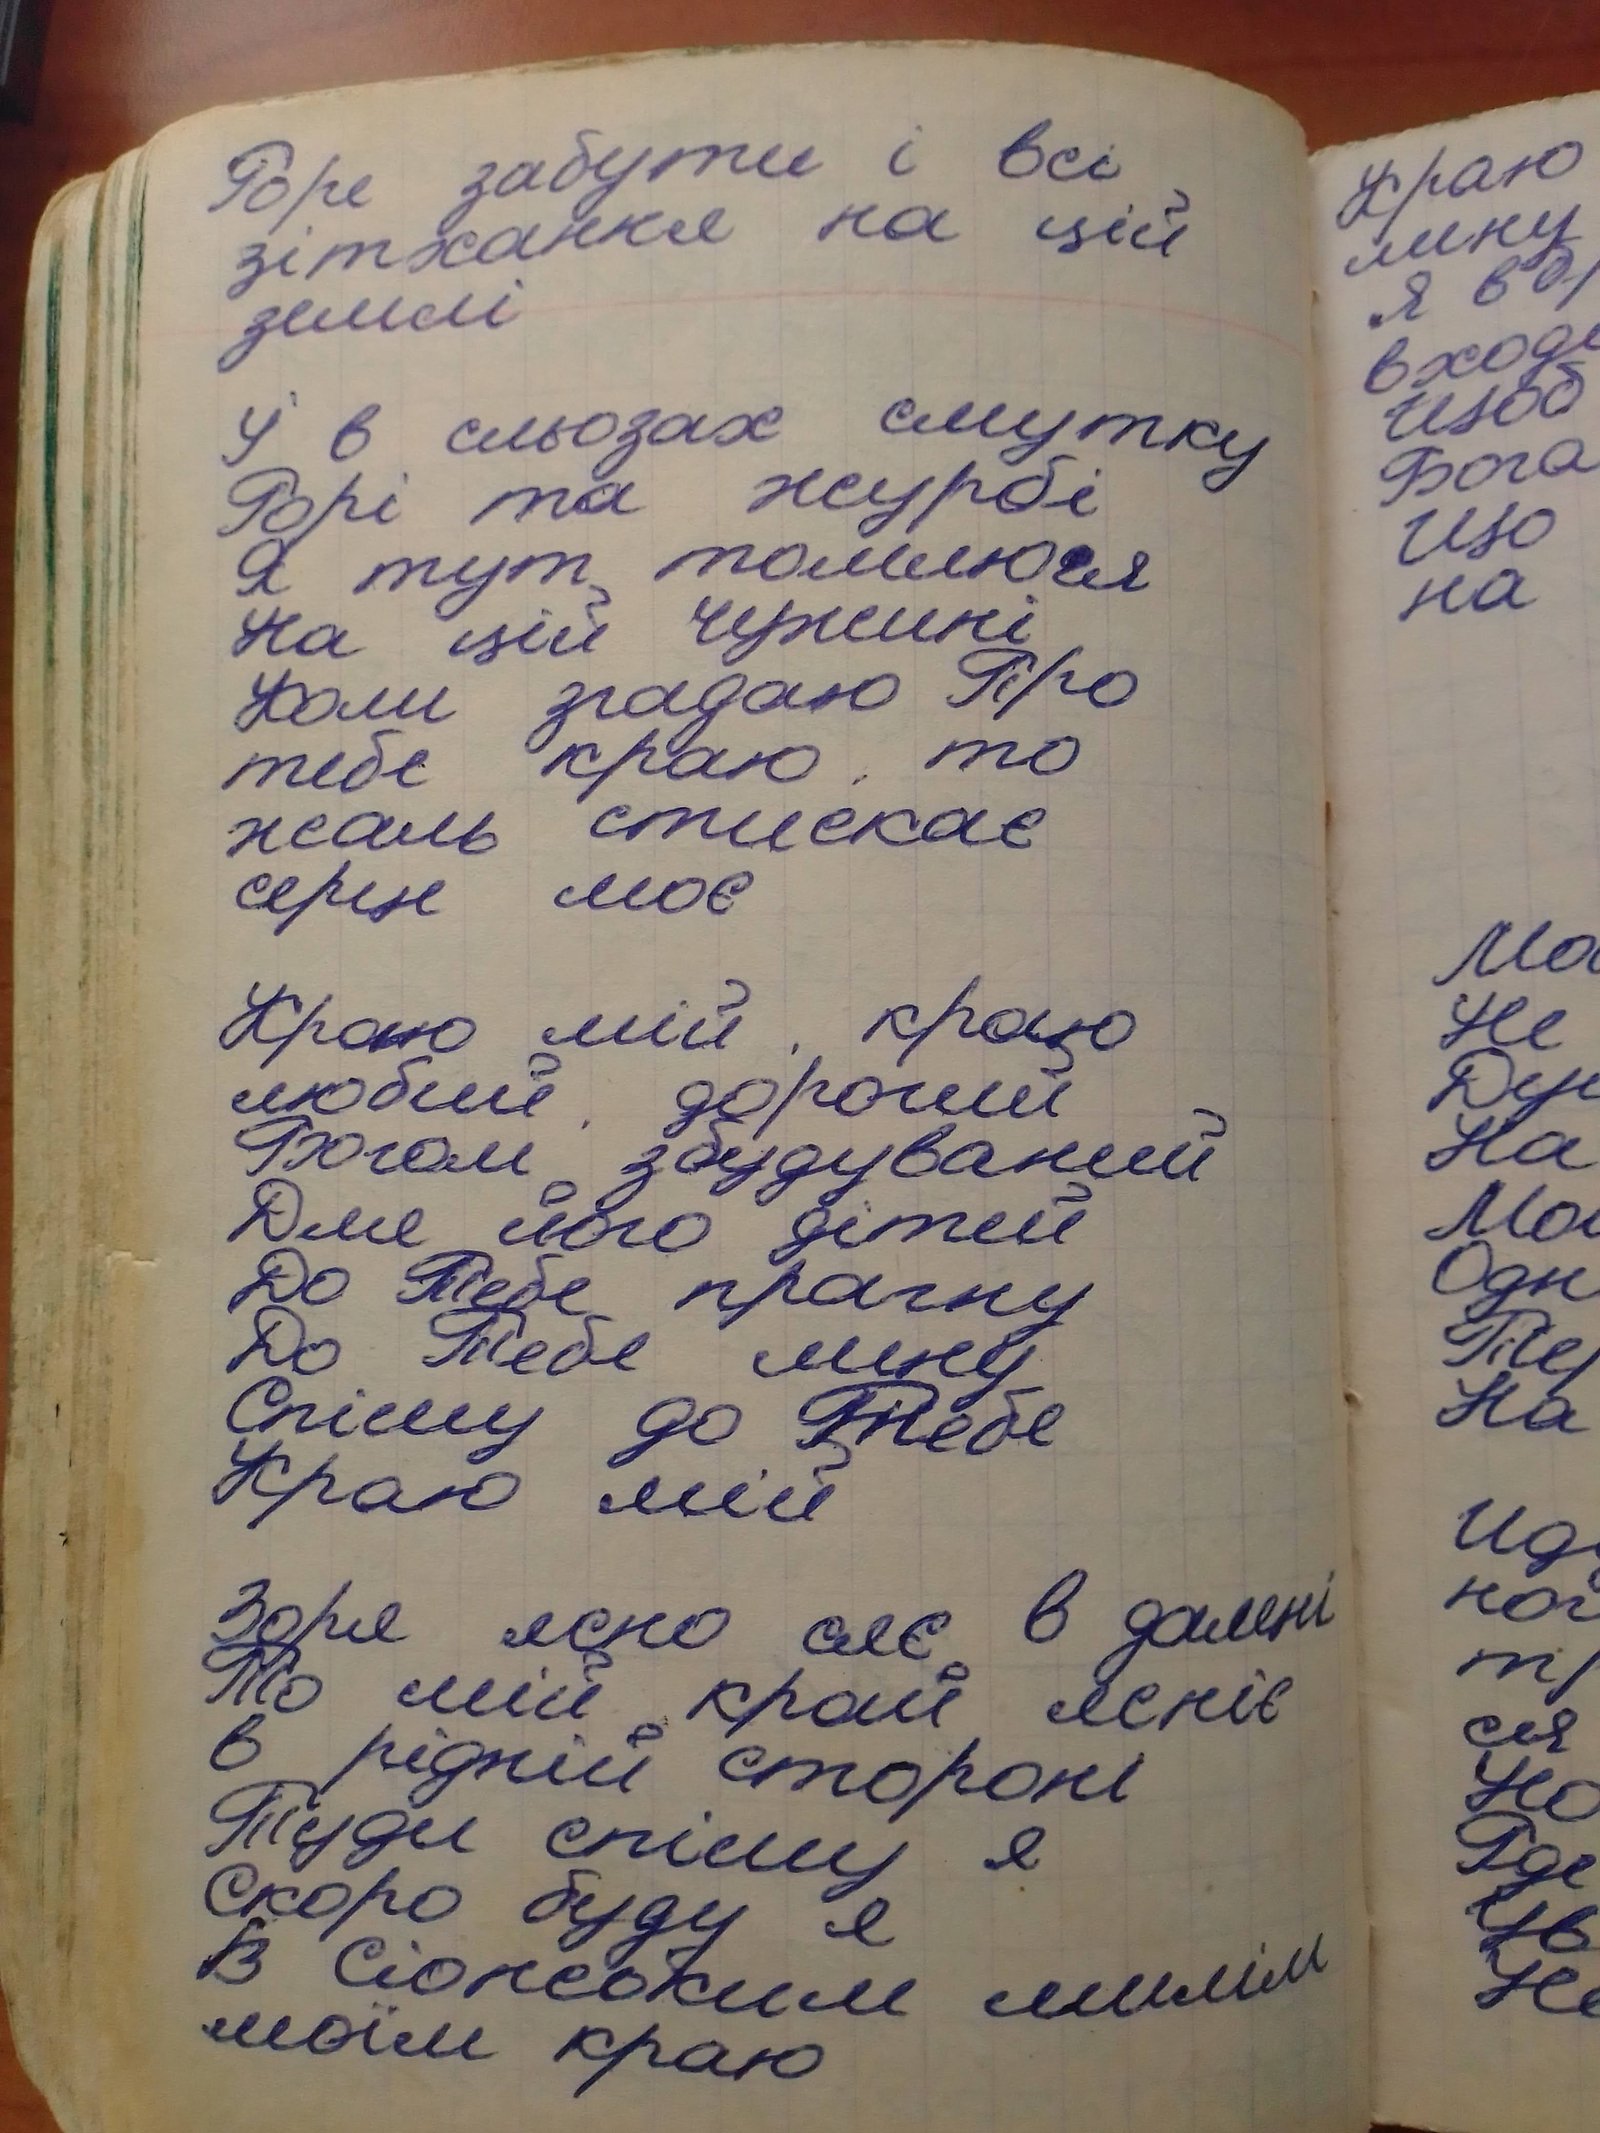 Горе забути і всі
зітхання на цій
землі
У в сльозах смутку
Горі та журбі
Я тут томлюся
На цій чужині
Коли згадаю Про
тебе краю, то
жаль стискає
серце моє
Краю мій, краю
любий, дорогий
Богом збудуваний
Для його дітей
До Тебе прагну
До Тебе лину
Спішу до Тебе
Краю мій
Зоря ясно сяє в далені
То мій край ясніє
в рідній стороні
Туди спішу я
Скоро буду я
В Сіонсьоким милім
моїм краю
Краю
лину
Я в
входи
щоб
Бога
Що
на
Не
На
На
ся
Где